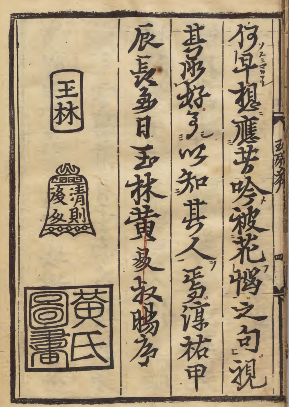 何早想應苦吟被花惱之句視
其所好可以知其人焉淳祐甲
辰長至日玉林黃昇叔暘序
玉林
清則
黃氏圖書